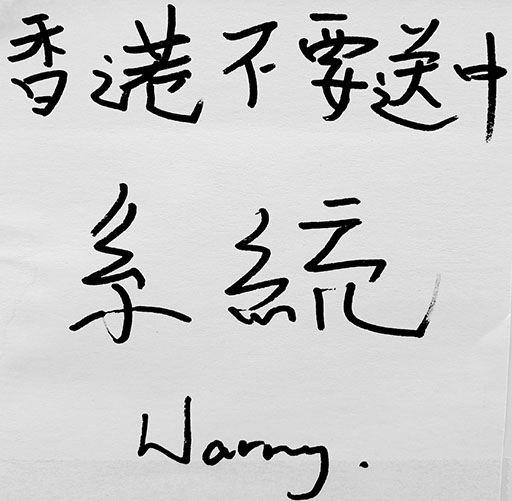 香港不要送中
系統
Warny.